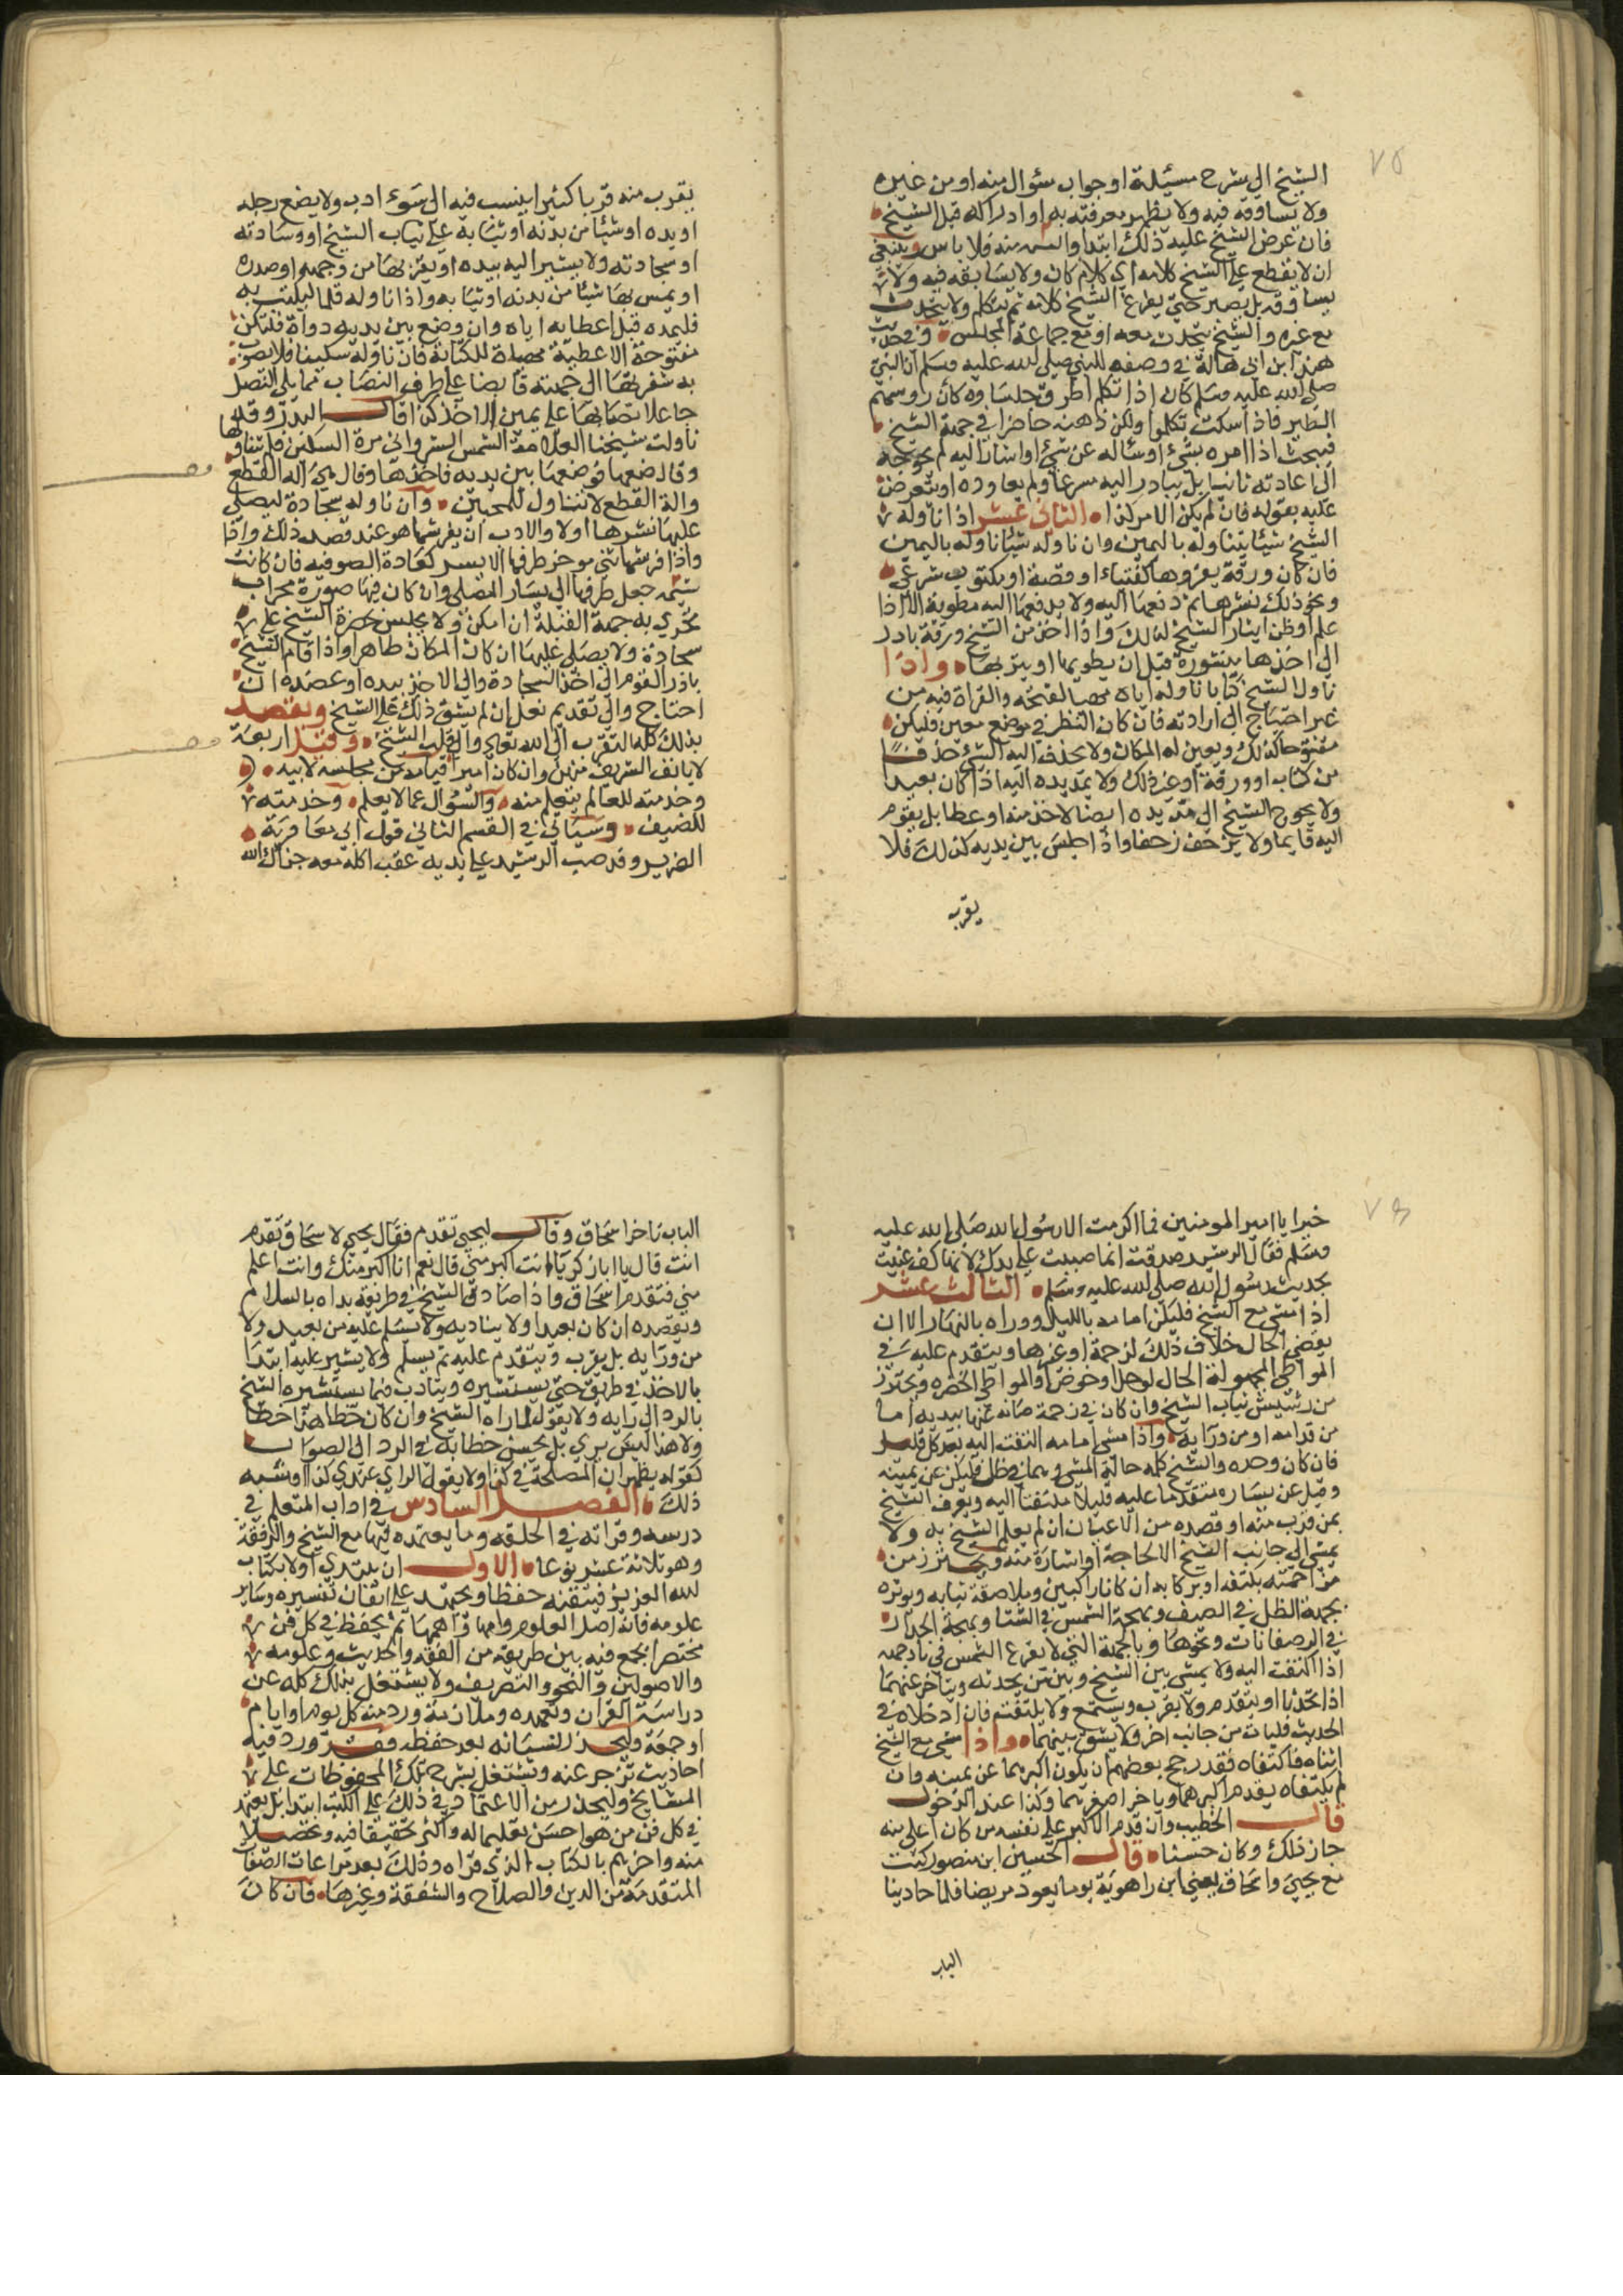 ٧٥
الشيخ الي شرح مسئلة او جواب سئوال منه او من غيره
ولا يساوقه فيه ولا يظهر معرفته به او ادراكه قبل الشيخ
فان عرض الشيخ عليه ذلك ابتدا والتمسه منه فلا باس وينبغي
ان لا يقطع علي الشيخ كلامه اي كلام كان ولا يسابقه فيه ولا
يساوقه بل يصبر حتي يفرغ الشيخ كلامه ثم يتكلم ولا يتحدث
مع غيره والشيخ يتحدث معه او مع جماعة المجلس وفي حديث
هند ابن ابي هالة في وصفه للنبي صلي الله عليه وسلم ان النبي
صلي الله عليه وسلم كان اذا تكلم اطرق جلساوه كان روسهم
الطير فاذا سكت تكلموا وليكن ذهنه حاضرا في جهة الشيخ
فبحث اذا امره بشيء او ساله عن شيء او اشار اليه لم يحوجه
الي اعادته ثانيا بل يبادر اليه مسرعا ولم يعاوده او يتعرض
عليه بقوله فان لم يكن الامر كذا الثاني عشر اذا ناوله
الشيخ شيئا يتناوله باليمين وان ناوله شيئا ناوله باليمين
فان كان ورقة يقروها كفتياء او قصة او مكتوب شرعي
ونحو ذلك نشرها ثم دفعها اليه ولا يدفعها اليه مطوية الا اذا
علم او ظن ايثار الشيخ لذلك واذا اخذ من الشيخ ورقة بادر
الي اخذها منشورة قبل ان يطويها او يتربها واذا
ناول الشيخ كتابا ناوله اياه مهيا لفتحه والقراة فيه من
غير احتياج الي ارادته فان كان النظر في موضع معين فليكن
مفتوحا كذلك ويعين له المكان ولا يحذف اليه الشيء حذفا
من كتاب او ورقة او غير ذلك ولا يمد يده اليه اذا كان بعيدا
ولا يحوج الشيخ الي مد يده ايضا لاخذ منه او عطا بل يقوم
اليه قايما ولا يزحف زحفا واذا جلس بين يديه كذلك فلا
يقرب
يقرب منه قربا كثيرا ينسب فيه الي سوء ادب ولا يضع رجله
او يده او شيئا من بدنه او ثيابه علي ثياب الشيخ او وسادته
او سجادته ولا يشير اليه بيده او يقربها من وجهه او صدره
او يمس بها شيئا من بدنه او ثيابه واذا ناوله قلما ليكتب به
فليمده قبل اعطايه اياه وان وضع بين يديه دواة فلتكن
مفتوحة الاغطية مهياة للكتابة فان ناوله سكينا فلا يصوب
به شفرتها الي جهته قابضا علي طرف النصاب مما يلي النصل
جاعلا نصابها علي يمين الاخذ كذا قال البدر وقد
ناولت شيخنا العلامة الشمس الشرواني مرة السكين فلم يتناولها
وقال ضعها فوضعها بين يديه فاخذها وقال هي الة القطع
والة القطع لا تتناول للمحبين وان ناوله سجادة ليصلي
عليها نشرها اولا والادب ان يفرشها هو عند قصد ذلك واذا
واذا فرشها ثني موخر طرفها الايسر كعادة الصوفيه فان كانت
مثنيه جعل طرفها الي يسار المصلي وان كان فيها صورة محراب
تحري به جهة القبلة ان امكن ولا يجلس بحضرة الشيخ علي
سجادة ولا يصلي عليها ان كان المكان طاهرا واذا قام الشيخ
بادر القوم الي اخذ السجادة والي الاخذ بيده او عضده ان
احتاج والي تقديم نعله ان لم يشق ذلك علي الشيخ ويقصد
بذلك كله التقرب الي الله تعالي والي قلب الشيخ وقيل اربعة
لا يانف الشريف منهن وان كان اميرا قيامه من مجلسه لابيه
وخدمته للعالم يتعلم منه والسوال عما لا يعلم وخدمته
للضيف وسياتي في القسم الثاني قول ابي معاوية
الضرير وقد صب الرشيد علي يديه عقب اكله معه جزاك الله
خيرا يا امير المومنين فما اكرمت الا رسول الله صلي الله عليه
وسلم فقال الرشيد صدقت انما صببت علي يدك لانها كف عنيت
بحديث رسول الله صلي الله عليه وسلم الثالث عشر
اذا مشي مع الشيخ فليكن امامه بالليل ووراه بالنهار الا ان
يقتضي الحال خلاف ذلك لزحمة او غيرها ويتقدم عليه في
المواطي المجهولة الحال لوحل او خوض او المواطي الخطره ويحترز
من ترشيش ثياب الشيخ وان كان في زحمة صانه عنها بيديه اما
من قدامه او من ورايه واذا مشي امامه التفت اليه بعد كل قليل
فان كان وحده والشيخ يكلمه حالة المشي وهما في ظل فليكن عن يمينه
وقيل عن يساره متقدما عليه قليلا ملتفتا اليه ويعرف الشيخ
بمن قرب منه او قصده من الاعيان ان لم يعلم الشيخ به ولا
يمشي الي جانب الشيخ الا لحاجة او اشارة منه ويحترز من
مزاحمته بكتفه او بركابه ان كانا راكبين وملاصقة ثيابه ويوثره
بجهة الظل في الصيف وبجهة الشمس في الشتا وبجهة الجدار
في الرصفانات ونحوها وبالجهة التي لا يقرع الشمس في بارحمه
اذا التفت اليه ولا يمشي بين الشيخ وبين من يحدثه ويتاخر عنهما
اذا تحدثا او يتقدم ولا يقرب ويستمع ولا يلتفت فان ادخلاه في
الحديث فليات من جانب اخر ولا يشق بينهما واذا مشي مع الشيخ
اثناه فاكتنفاه فقد رجح بعضهم ان يكون اكبرهما عن يمينه وان
لم يكتنفاه يقدم اكبرهما وياخر اصغرهما وكذا عند الدخول
قال الخطيب وان قدم الاكبر علي نفسه من كان اعلم منه
جاز ذلك وكان حسنا قال الحسين ابن منصور كنت
مع يحيي واسحاق يعني ابن راهوية يوما يعود مريضا فلما حادينا
الباب
الباب تاخر اسحاق وقال ليحيي تقدم فقال يحيي لاسحاق تقدم
انت قال يا ابا زكريا انت اكبر مني قال نعم انا اكبر منك وانت اعلم
مني فتقدم اسحاق واذا صادف الشيخ في طريقه بداه بالسلام
ويقصده ان كان بعيدا ولا يناديه ولا يسلم عليه من بعيد ولا
من ورايه بل يقرب ويتقدم عليه ثم يسلم ولا يشير عليه ابتدا
بالاخذ في طريق حتي يستشيره ويتادب فيما يستشيره الشيخ
بالرد الي رايه ولا يقول لما راه الشيخ وان كان خطا هذا خطا
ولا هذا ليس براي بل يحسن خطابه في الرد الي الصواب
كقوله يظهر ان المصلحة في كذا ولا يقول الراي عندي كذا وشبه
ذلك الفصل السادس في اداب المتعلم في
درسه وقراته في الحلقه وما يعتمده فيها مع الشيخ والرفقة
وهو ثلاثة عشر نوعا الاول ان يبتدي اولا بكتاب
لله العزيز فيتقنه حفظا ويجتهد علي اتقان تفسيره وساير
علومه فانه اصل العلوم وامها واهمها ثم يحفظ في كل فن
مختصرا يجمع فيه بين طريقه من الفقه والحديث وعلومه
والاصولين والنحو والتصريف ولا يشتغل بذلك كله عن
دراسة القران وتعهده وملازمة ورد منه كل يوم او ايام
او جمعة وليحذر لنسيانه بعد حفظه فقد ورد فيه
احاديث تزجر عنه ويشتغل بشرح تلك المحفوظات علي
المشايخ وليحذر من الاعتماد في ذلك علي الكتب ابتدا بل يعتمد
في كل فن من هو احسن تعليما له واكثر تحقيقا فيه وتحصيلا
منه واخبرهم بالكتاب الذي قراه وذلك بعد مراعات الصفات
المتقدمة من الدين والصلاح والشفقة وغيرها فان كان